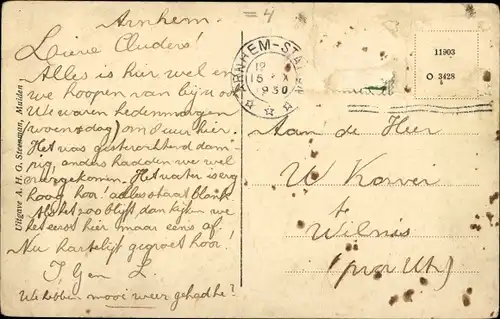 Arnhem.
Lieve Ouders!
Alles is hier wel en
we hoopen van bijn ook
We waren hedenmorgen
(woensdag) om 8 uur hier.
Het was gisterochtend dam-
pig, anders hadden we wel
overgekomen. Het water is erg
hoog hoor! alles staat blank.
Als het zoo blijft dan kijken we
het eerst hier maar eens af.
Nu hartelijk gegroet hoor!
J. G en L.
We hebben mooi weer gehad he?
Uitgave A. H. G. Steenman, Malden
=4
ARNHEM-STATION
12
15 X
1930
11903
O 3428
Aan de Heer
W Kover
te
Wilnis
(prov Utr)